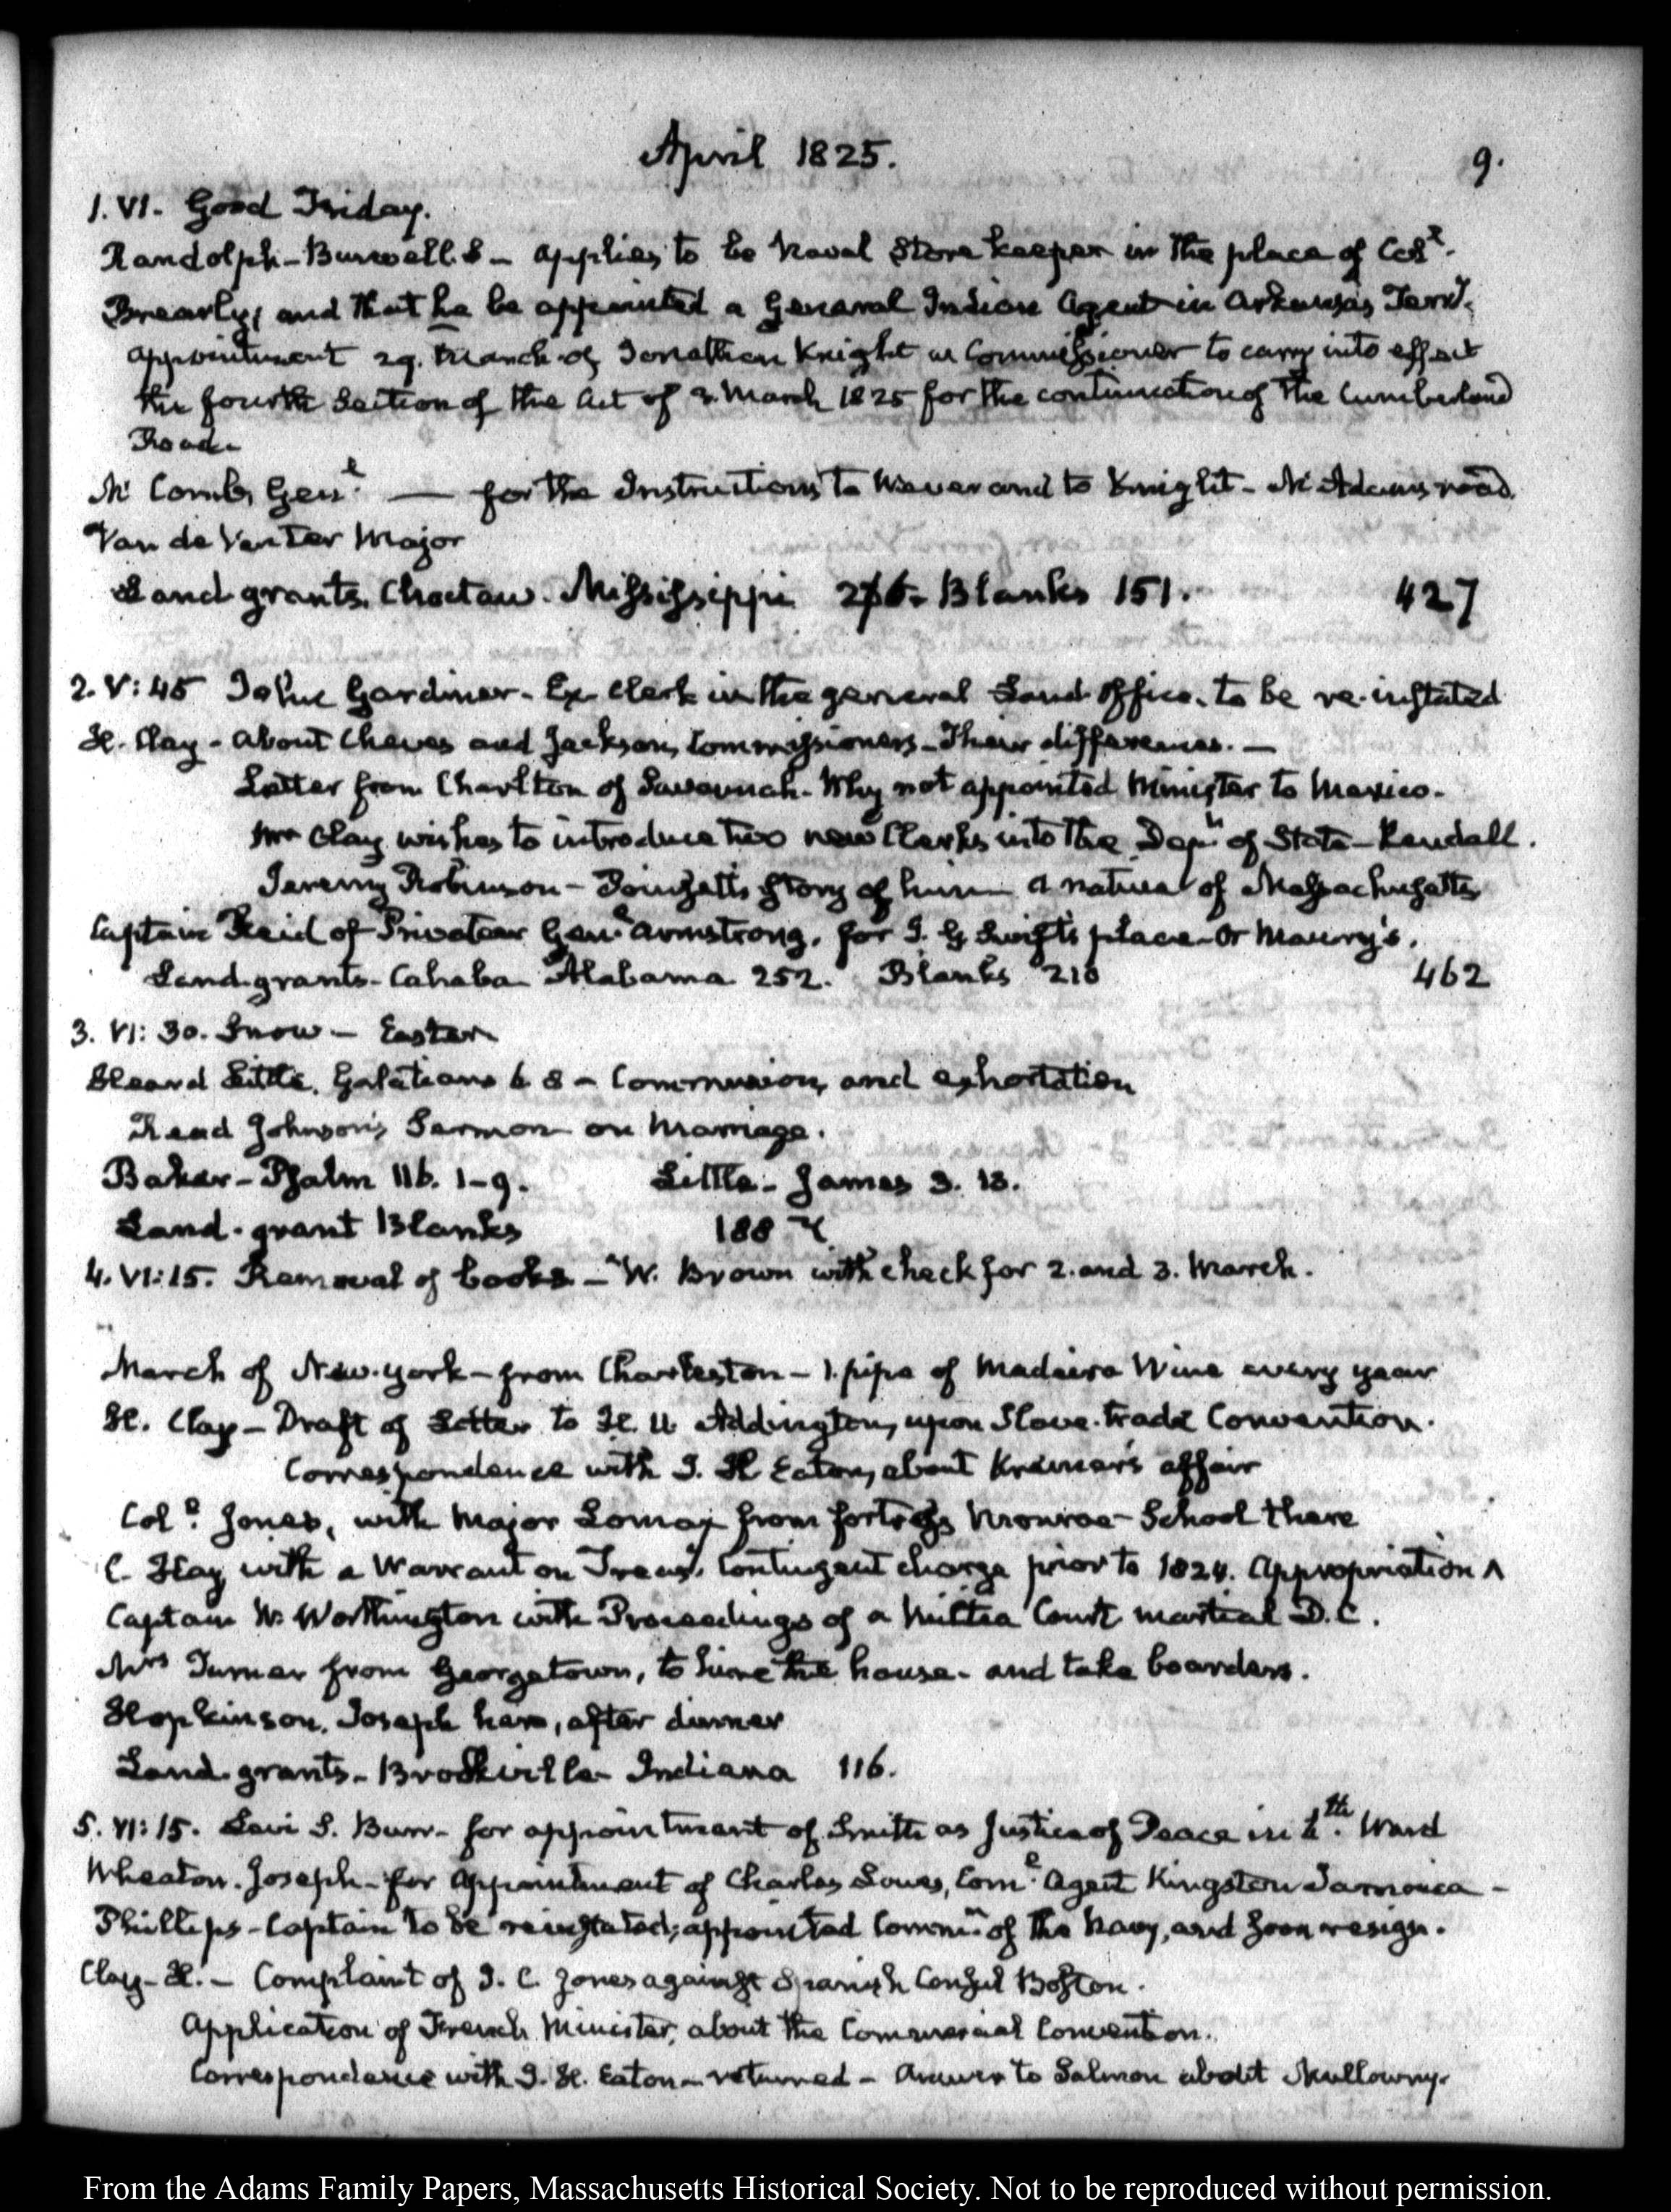 April 1825.
9.
1. VI. Good Friday.
Randolph-Burwell S - applies to be Naval Store keeper in the place of Colˡ.
Brearly; and that he be appointed a General Indian Agent in Arkansas Terrʸ.
Appointment 29. March of Jonathan Knight as Commissioner to carry into effect
the fourth Section of the Act of 3. March 1825 for the continuation of the Cumberland
Road.
Mᶜ Comb, Genˡ. — for the Instructions to Wever and to Knight - McAdams road.
Van de Venter Major
Land grants. Choctaw. Mississippi 276. Blanks 151. 427
2. V: 45 John Gardiner - Ex Clerk in the general Land Office, to be re-instated
H. Clay - about Cheves and Jackson, Commissioners - Their differences. —
Letter from Charlton of Savannah - Why not appointed Minister to Mexico.
Mr Clay wishes to introduce two new Clerks into the Depᵗ of State - Kendall.
Jeremy Robinson - Poinsett's story of him a native of Massachusetts
Captain Reid of Privateer Genˡ Armstrong, for J. G. Swift's place - or Maury's.
Land-grants - Cahaba Alabama 252. Blanks 210 462
3. VI: 30. Snow - Easter
Heard Little. Galatians 6 8 - Communion, and exhortation
Read Johnson's Sermon on Marriage.
Baker - Psalm 116. 1-9. Little - James 3. 13.
Land-grant Blanks 188
4. VI: 15. Removal of books - W. Brown with check for 2. and 3. March.
March of New-York - from Charleston - 1. pipe of Madeira Wine every year
H. Clay - Draft of Letter to H. U Addington, upon Slave-trade Convention.
Correspondence with J. H Eaton, about Kremer's affair
Colˡ. Jones, with Major Lomax from fortress Monroe - School there
C. Hay with a Warrant on Treasʸ. Contingent charge prior to 1824. Appropriation ^
Captain W. Worthington with Proceedings of a Militia Court martial D.C.
Mrs Turner from Georgetown, to hire the house - and take boarders.
Hopkinson, Joseph here, after dinner
Land-grants - Brookville Indiana 116.
5. VI: 15. Levi S. Burr - for appointment of Smith as Justice of Peace in ᵗʰ. Ward
Wheaton. Joseph - for Appointment of Charles Comˡ. Agent Kingston Jamaica -
Phillips - Captain to be reinstated; appointed Commʳ of the Navy, and soon resign.
Clay - H. - Complaint of J. C. Jones against Spanish Consul Boston.
Application of French Minister, about the Commercial Convention.
Correspondence with J. H. Eaton - returned - Answer to Salmon about Mullowny.
From the Adams Family Papers, Massachusetts Historical Society. Not to be reproduced without permission.